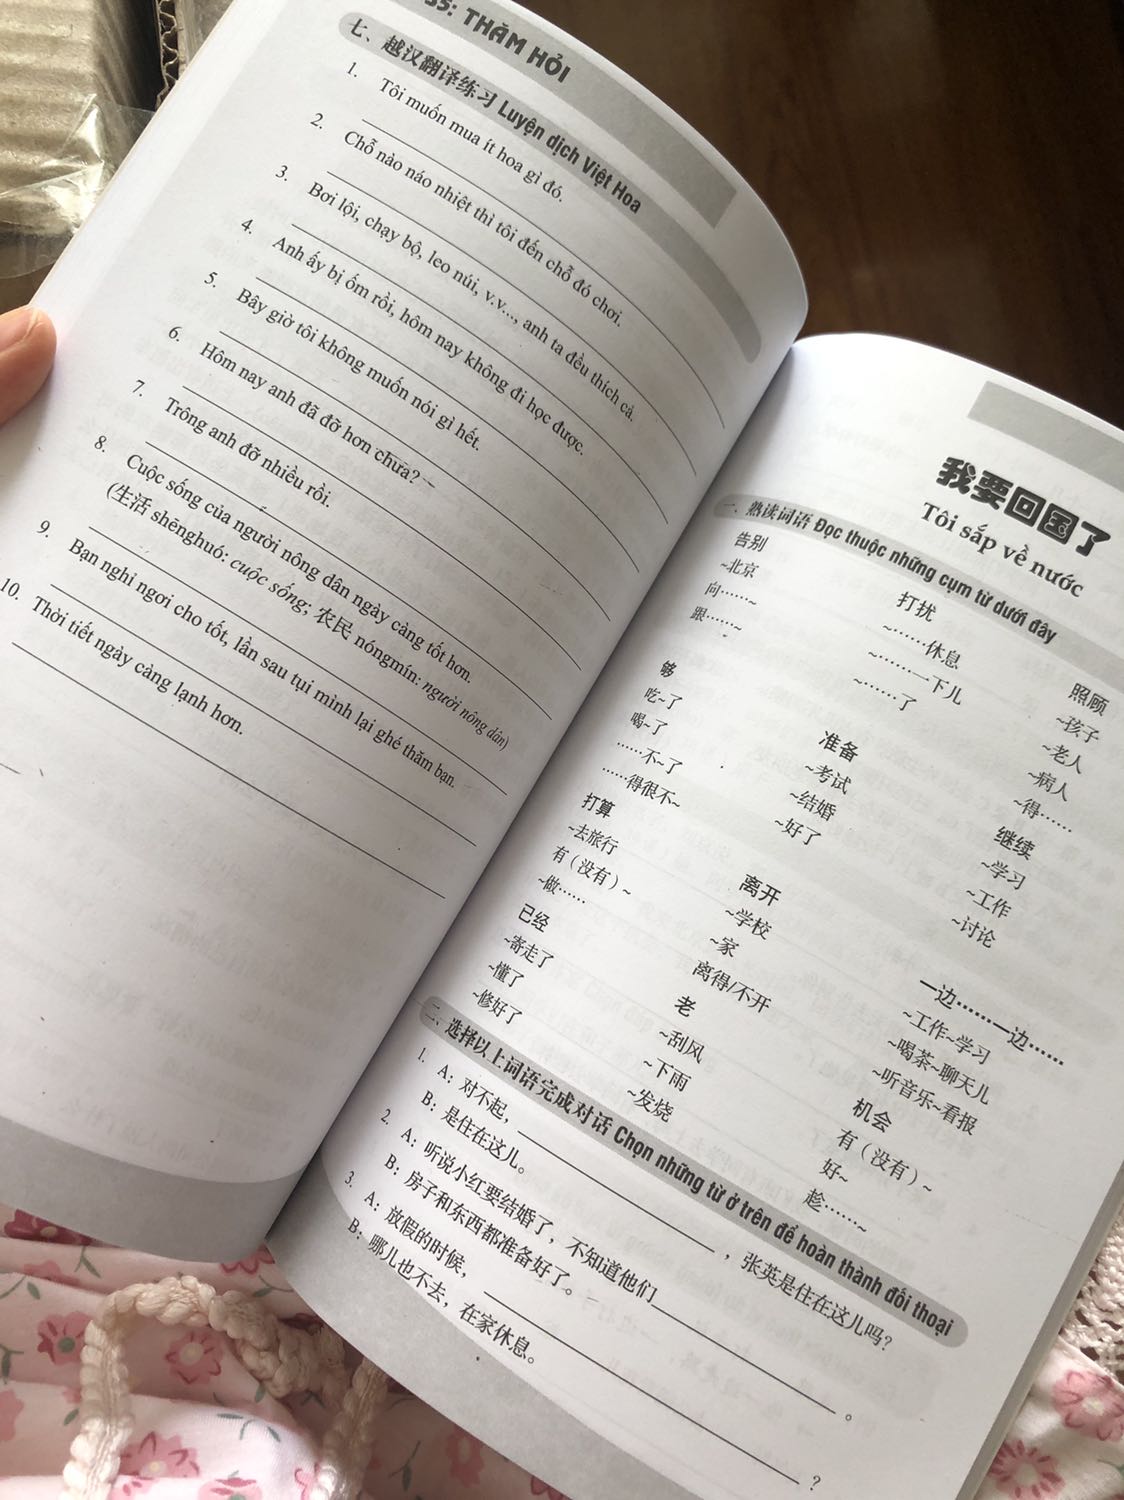 35: THĂM HỎI
七、越汉翻译练习 Luyện dịch Việt Hoa
1. Tôi muốn mua ít hoa gì đó.
2. Chỗ nào náo nhiệt thì tôi đến chỗ đó chơi.
3. Bơi lội, chạy bộ, leo núi, v.v..., anh ta đều thích cả.
4. Anh ấy bị ốm rồi, hôm nay không đi học được.
5. Bây giờ tôi không muốn nói gì hết.
6. Hôm nay anh đã đỡ hơn chưa?
7. Trông anh đỡ nhiều rồi.
8. Cuộc sống của người nông dân ngày càng tốt hơn.
(生活 shēnghuó: cuộc sống; 农民 nóngmín: người nông dân)
9. Bạn nghỉ ngơi cho tốt, lần sau tụi mình lại ghé thăm bạn.
10. Thời tiết ngày càng lạnh hơn.
我要回国了
Tôi sắp về nước
一、熟读词语 Đọc thuộc những cụm từ dưới đây
告别
~北京
向……~
跟……~
打扰
~……休息
~……一下儿
~……了
照顾
~孩子
~老人
~病人
~得……
够
吃~了
喝~了
……不~了
……得很不~
准备
~考试
~结婚
~好了
继续
~学习
~工作
~讨论
打算
~去旅行
有（没有）~
~做……
离开
~学校
~家
离得/不开
一边……一边……
~工作~学习
~喝茶~聊天儿
~听音乐~看报
已经
~寄走了
~懂了
~修好了
老
~刮风
~下雨
~发烧
机会
有（没有）~
好~
趁……~
二、选择以上词语完成对话 Chọn những từ ở trên để hoàn thành đối thoại
1. A：对不起，____________，张英是住在这儿吗？
B：是住在这儿。
2. A：听说小红要结婚了，不知道他们____________。
B：房子和东西都准备好了。
3. A：放假的时候，____________？
B：哪儿也不去，在家休息。